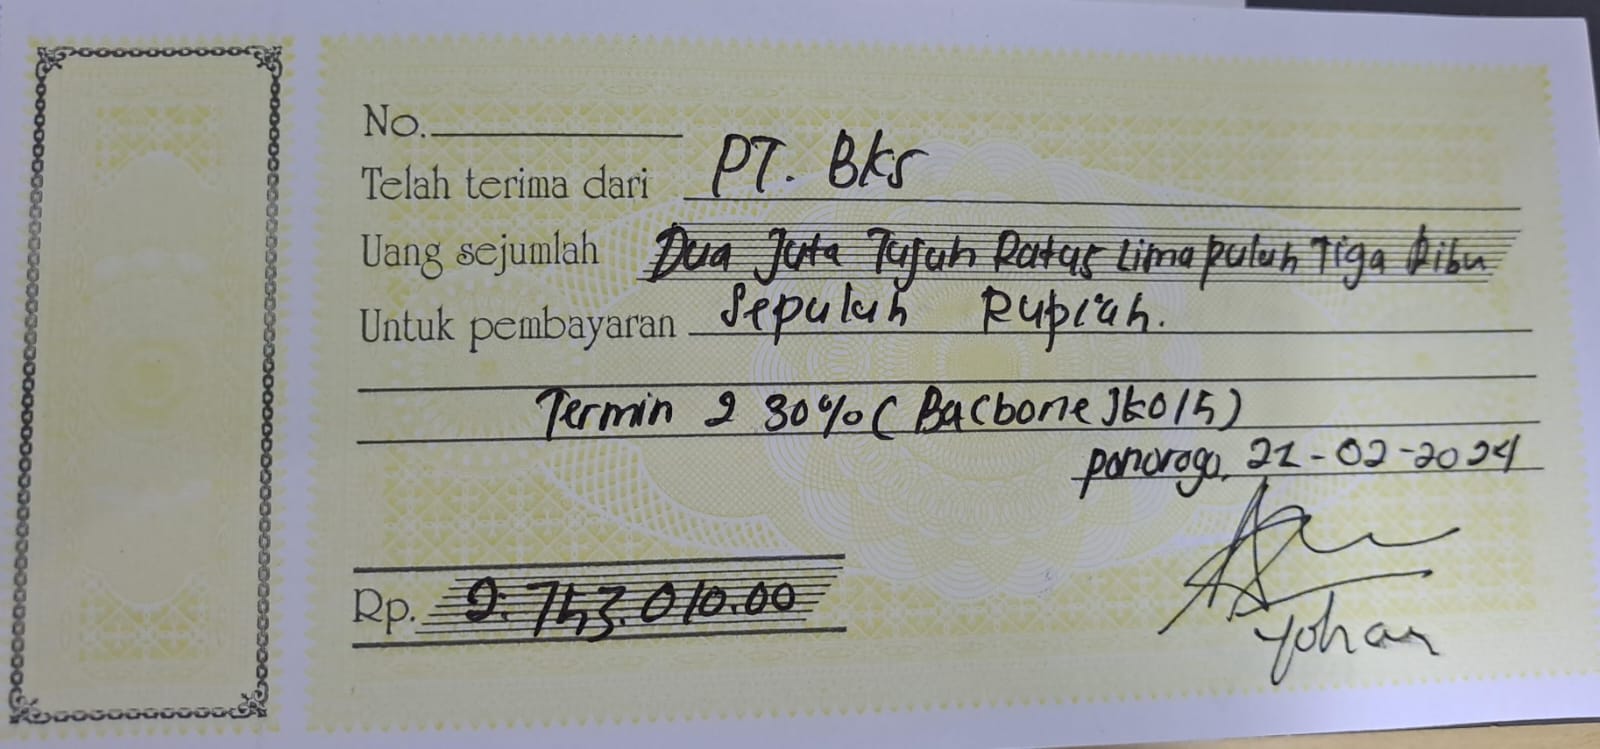 No.
Telah terima dari PT. BKS
Uang sejumlah Dua Juta Tujuh Ratus Lima puluh Tiga Ribu
Untuk pembayaran Sepuluh Rupiah.
Termin 2 30% (Bacbone JK015)
ponorogo, 21-02-2024
Rp. 2.753.010.00
Yohan